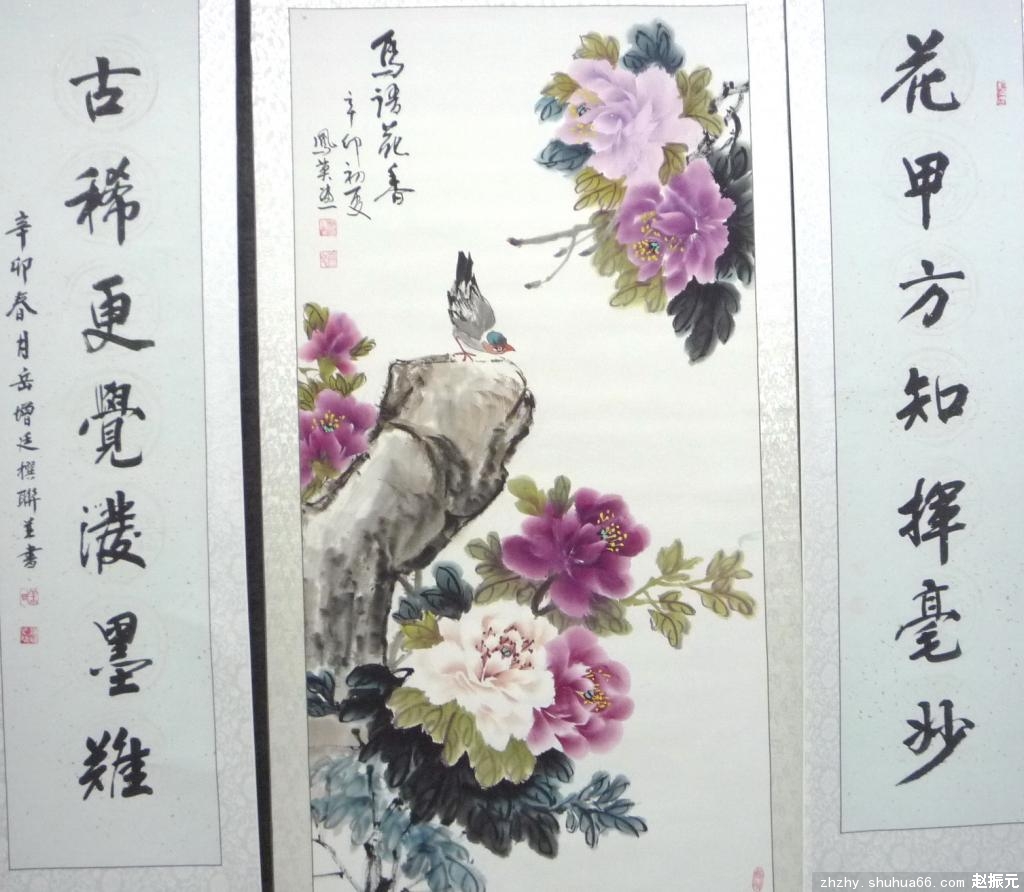 花甲方知揮毫妙
鳥語花香
辛卯初夏
鳳英畫
古稀更覺潑墨難
辛卯春月岳增廷撰聯並書
zhzhy.shuhua66.com 赵振元